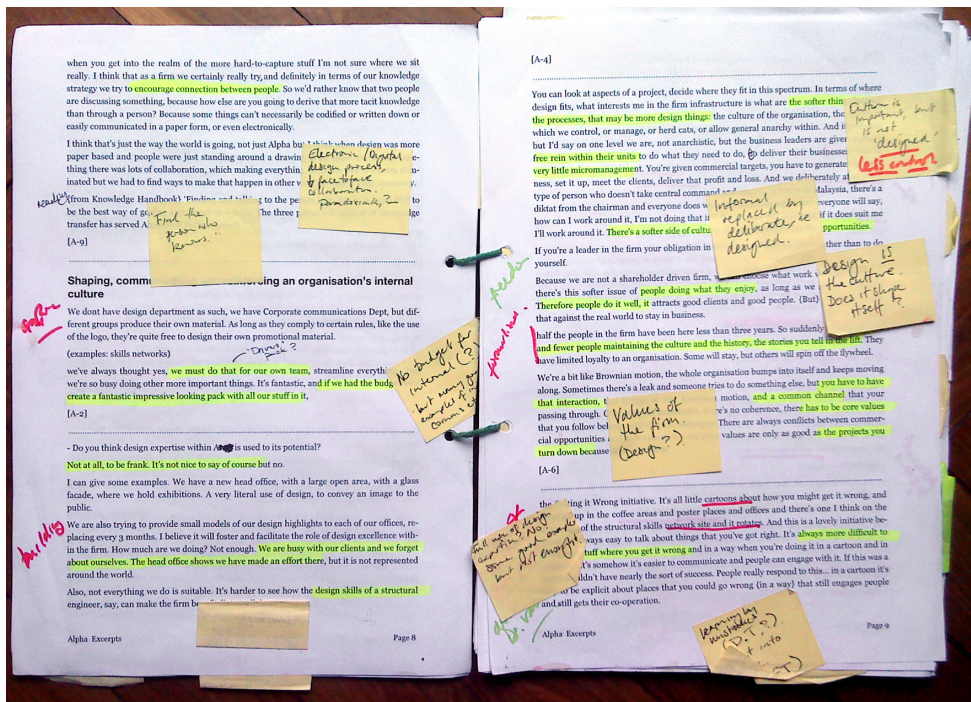 when you get into the realm of the more hard-to-capture stuff I'm not sure where we sit
really. I think that as a firm we certainly really try, and definitely in terms of our knowledge
strategy we try to encourage connection between people. So we'd rather know that two
people are discussing something, because how else are you going to derive that more tacit knowledge
than through a person? Because some things can't necessarily be codified or written down or
easily communicated in a paper form, or even electronically.
I think that's just the way the world is going, not just Alpha but I think when design was more
paper based and people were just standing around a drawin
thing there was lots of collaboration, which making everythin
inated but we had to find ways to make that happen in other w
Electronic/Digital
design process,
face to face
collaboration.
paradoxically?
Really
(from Knowledge Handbook) 'Finding and talking to the pe
to be the best way of ge The three p
transfer has served A
Find the
person who
knows..
[A-9]
Shaping, commu cing an organisation's internal
culture
We dont have design department as such, we have Corporate communications Dept, but dif-
ferent groups produce their own material. As long as they comply to certain rules, like the use
of the logo, they're quite free to design their own promotional material.
(examples: skills networks)
we've always thought yes, we must do that for our own team, streamline everythi
we're so busy doing other more important things. It's fantastic, and if we had the budg
create a fantastic impressive looking pack with all our stuff in it,
No budget for
internal (?)
but many
examples of
[A-2]
- Do you think design expertise within A is used to its potential?
Not at all, to be frank. It's not nice to say of course but no.
I can give some examples. We have a new head office, with a large open area, with a glass
facade, where we hold exhibitions. A very literal use of design, to convey an image to the
public.
building
We are also trying to provide small models of our design highlights to each of our offices, re-
placing every 3 months. I believe it will foster and facilitate the role of design excellence with-
in the firm. How much are we doing? Not enough. We are busy with our clients and we forget
about ourselves. The head office shows we have made an effort there, but it is not represented
around the world.
Also, not everything we do is suitable. It's harder to see how the design skills of a structural
engineer, say, can make the firm be
Alpha Excerpts Page 8
[A-4]
You can look at aspects of a project, decide where they fit in this spectrum. In terms of where
design fits, what interests me in the firm infrastructure is what are the softer thin
the processes, that may be more design things: the culture of the organisation, the
which we control, or manage, or herd cats, or allow general anarchy within. And i
but I'd say on one level we are, not anarchistic, but the business leaders are given
free rein within their units to do what they need to do, to deliver their businesses
very little micromanagement. You're given commercial targets, you have to generate
ness, set it up, meet the clients, deliver that profit and loss. And we deliberately at
type of person who doesn't take central command and Malaysia, there's a
diktat from the chairman and everyone does w everyone will say,
how can I work around it, I'm not doing that i if it does suit me
I'll work around it. There's a softer side of cultu opportunities.
Culture is
important, but
is not
'designed'
less control
Informal
replaced by
deliberate, ie
designed.
If you're a leader in the firm your obligation in ther than to do
yourself.
Because we are not a shareholder driven firm, w choose what work
there's this softer issue of people doing what they enjoy, as long as we
Therefore people do it well, it attracts good clients and good people. (But)
that against the real world to stay in business.
Design IS
the culture.
Does it shape
itself?
half the people in the firm have been here less than three years. So suddenly
and fewer people maintaining the culture and the history, the stories you tell in the lift. They
have limited loyalty to an organisation. Some will stay, but others will spin off the flywheel.
We're a bit like Brownian motion, the whole organisation bumps into itself and keeps moving
along. Sometimes there's a leak and someone tries to do something else, but you have to have
that interaction, t motion, and a common channel that your
passing through. 's no coherence, there has to be core values
that you follow bel There are always conflicts between commer-
cial opportunities values are only as good as the projects you
turn down because
Values of
the firm.
(Design?)
[A-6]
the Getting it Wrong initiative. It's all little cartoons about how you might get it wrong, and
up in the coffee areas and poster places and offices and there's one I think on the
of the structural skills network site and it rotates. And this is a lovely initiative be-
ways easy to talk about things that you've got right. It's always more difficult to
tuff where you get it wrong and in a way when you're doing it in a cartoon and in
t's somehow it's easier to communicate and people can engage with it. If this was a
ldn't have nearly the sort of success. People really respond to this... in a cartoon it's
be explicit about places that you could go wrong {in a way} that still engages people
and still gets their co-operation.
learning by
mistakes
(D.T.?)
Alpha Excerpts Page 9